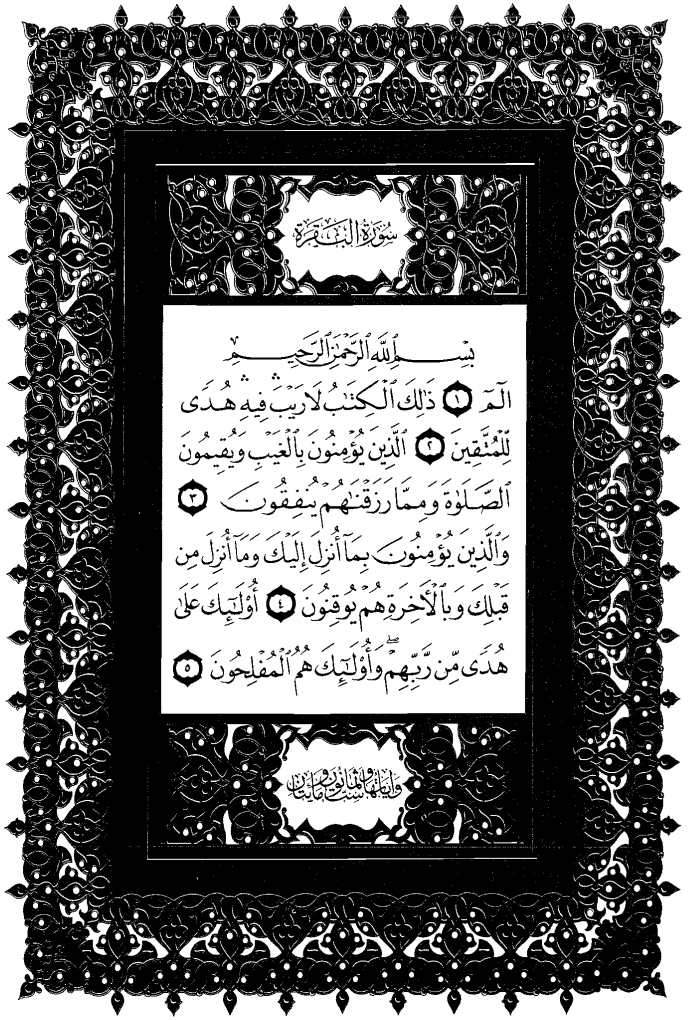 سُورَةُ البَقَرَةِ
بِسْمِ ٱللَّهِ ٱلرَّحْمَٰنِ ٱلرَّحِيمِ
الٓمٓ ١ ذَٰلِكَ ٱلْكِتَٰبُ لَا رَيْبَ ۛ فِيهِ ۛ هُدًى
لِّلْمُتَّقِينَ ٢ ٱلَّذِينَ يُؤْمِنُونَ بِٱلْغَيْبِ وَيُقِيمُونَ
ٱلصَّلَوٰةَ وَمِمَّا رَزَقْنَٰهُمْ يُنفِقُونَ ٣
وَٱلَّذِينَ يُؤْمِنُونَ بِمَآ أُنزِلَ إِلَيْكَ وَمَآ أُنزِلَ مِن
قَبْلِكَ وَبِٱلْأَخِرَةِ هُمْ يُوقِنُونَ ٤ أُو۟لَٰٓئِكَ عَلَىٰ
هُدًى مِّن رَّبِّهِمْ ۖ وَأُو۟لَٰٓئِكَ هُمُ ٱلْمُفْلِحُونَ ٥
وَآيَاتُهَا سِتٌّ وَثَمَانُونَ وَمِائَتَانِ